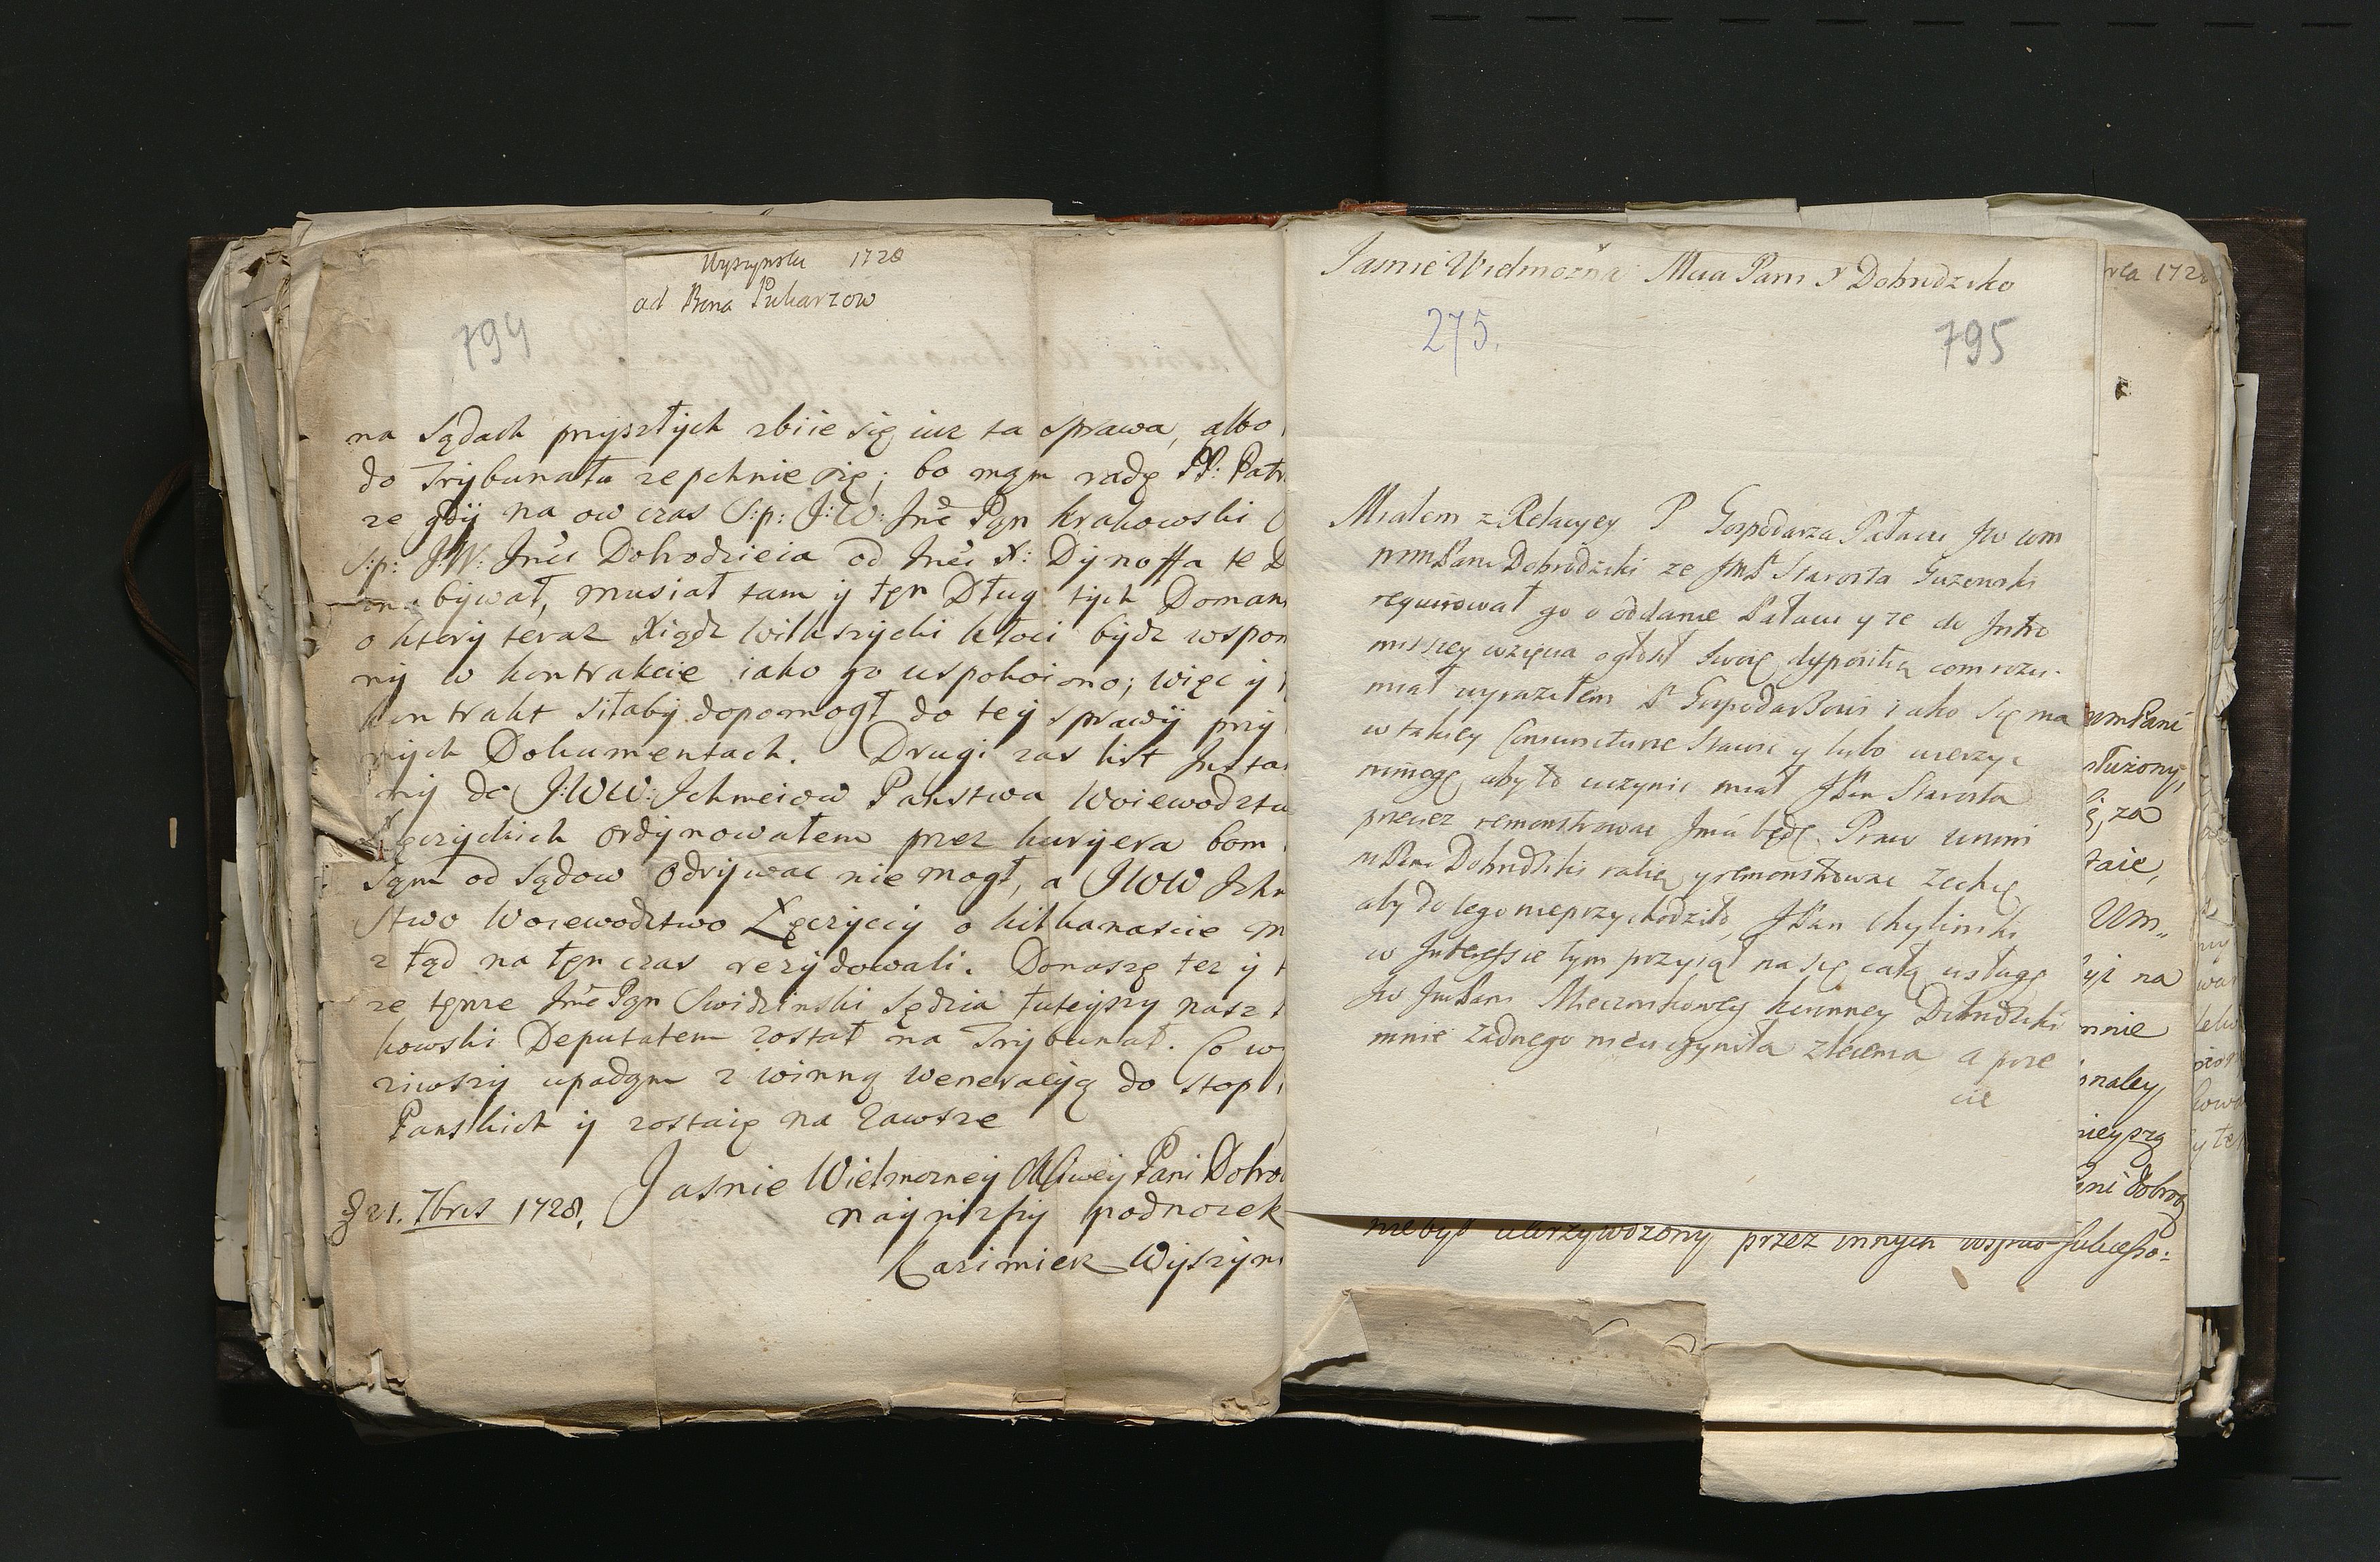 Wyszynski 1728
ad Bona Puharzow
794
na Sądach przyszłych zbiie się iuz ta sprawa, albo
do Trybunału zepchnie się; bo mąm radę PP: Patr
ze gdy na ow czas S:p: J:W: Jmć Pąn Krakowski
S:p: J:W: Jmći Dobrodzieia od Jmći X: Dynoffa te D
ona bywał, musiał tam y tęn Dług tych Doman
o ktory teraz Xiądz Wilkszycki kłoci bydz wspom
ny w kontrakcie iako go uspokoiono; więc y
kontrakt siłaby dopomogł do tey sprawy przy
nych Dokumentach. Drugi zas list Insta
ny do J:WW: Ichmciow Panstwa Woiewodztw
Łęczyckich ordynowałem przez kuryera bom
sąm od Sądow odrywac nie mogł, a JWW Ich
stwo Woiewodztwo Łęczyccy o kilkanascie m
ztąd na tęn czas rezydowali. Donoszę tez y
ze tęnze Jmć Pąn Swidzinski Sędzia tuteyszy nasz
kowski Deputatem został na Trybunał. Co w
ziwszy upadąm z winną weneracyą do stop
Panskich y zostaię na zawsze
Jasnie Wielmozney Mciwey Pani Dobro
D 21. 7bris 1728. nayniższy podnozek
Kazimierz Wyszyn
Jasnie Wielmożna Mcia Pani y Dobrodzko
275.
795
Miałem z Relacyey P Gospodarza Pałacu Jw wm
mmPani Dobrodziki ze JmP Starosta Guzowski
requirował go o oddanie Pałacu y ze do Intro
missyey wzięcia ogłosił Swoię dyspositią com rozu-
miał wyraziłem P Gospodarzowi iako się ma
w takiey Coniuncturze Stawic y lubo wierzyc
niemogę aby to uczynic miał JPan Starosta
przeciez remonstrowac Jmci będę Praw wmm
mPani Dobrodziki racią y remonstrowac zechcę
aby do tego nieprzychodziło, JPan Chylinski
w Interessie tym przyiął na się całą usługę
Jw JmPani Miecznikowey koronney Dobrodziki
mnie zadnego nieuczyniła zlecenia a prze
cie
niebył ukrzywdzony przez innych wspuł-Sukcesso:
rca 172
wmPani
służony,
ę, za
taie,
Um„
na
mnie
naley
nieyprzą
ani dobrodz